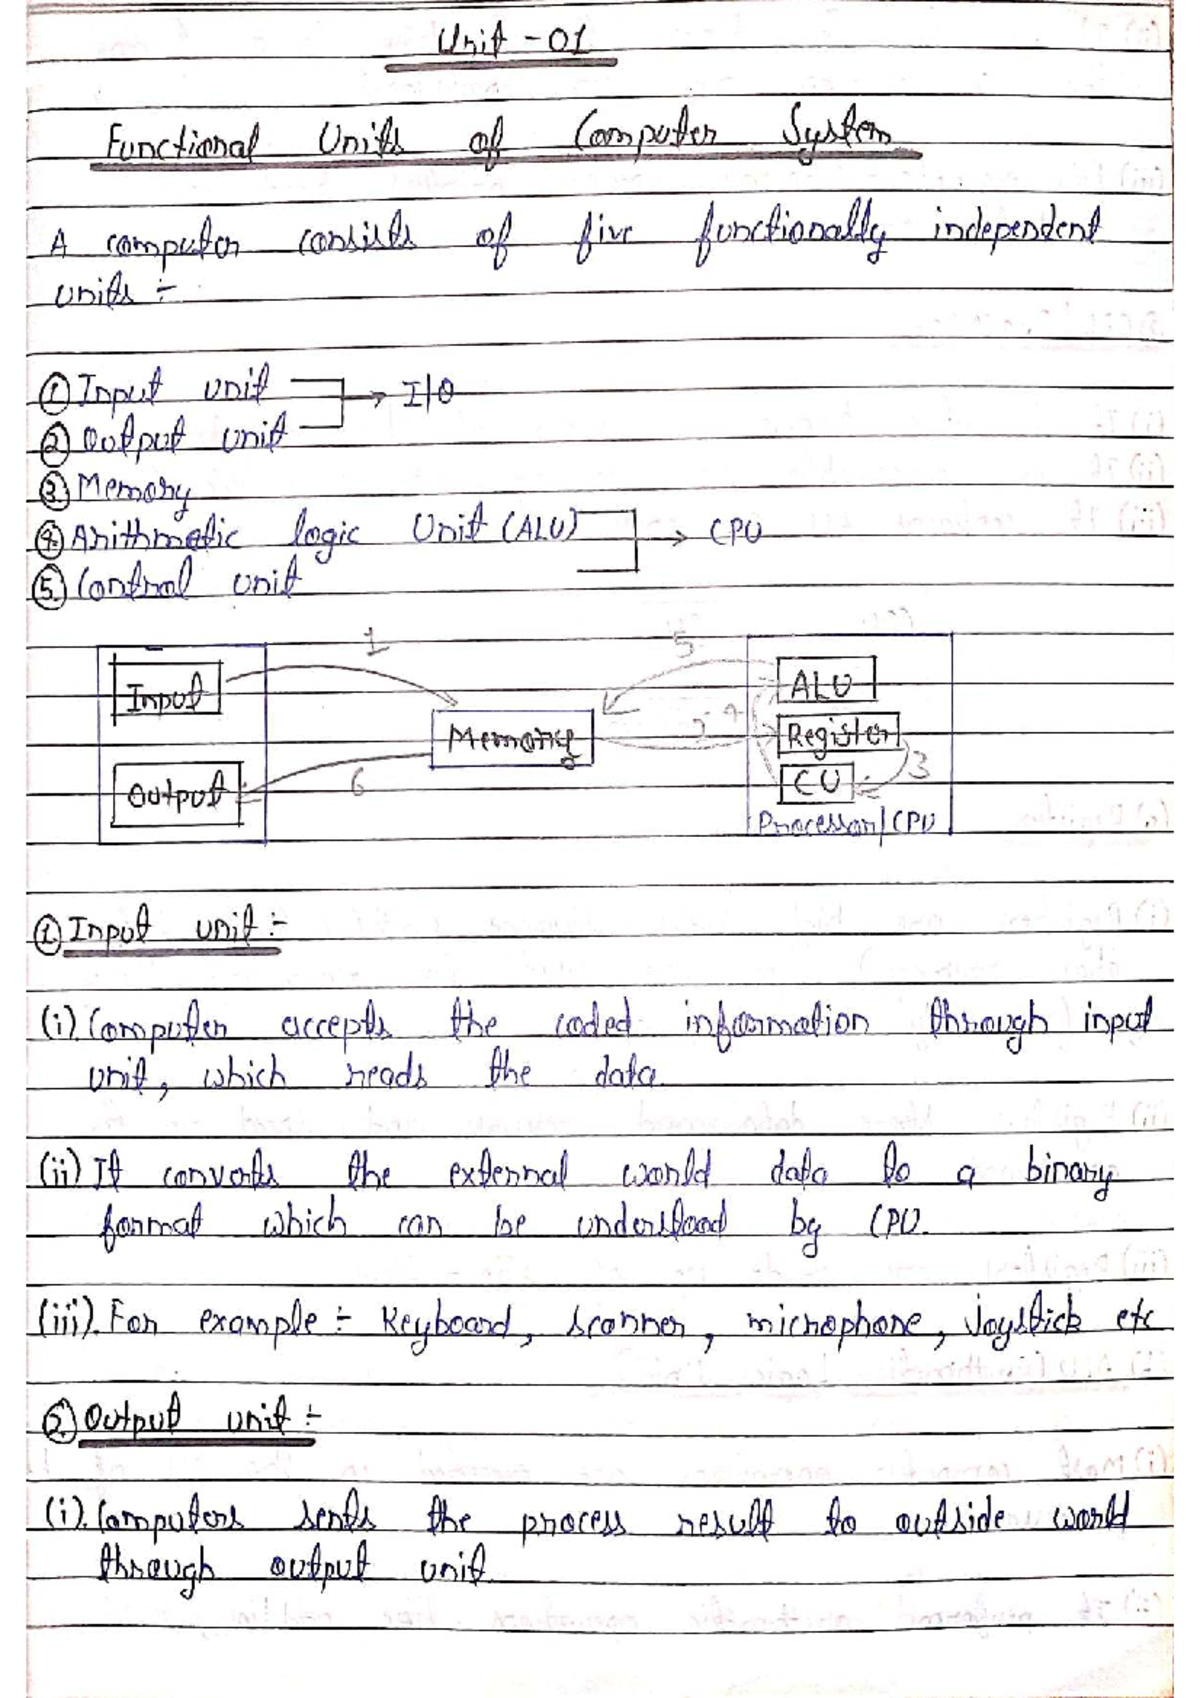 Unit - 01
Functional Units of Computer System
A computer consists of five functionally independent
units :-
① Input unit → I/O
② Output unit
③ Memory
④ Arithmetic logic Unit (ALU) → CPU
⑤ Control unit
1
5
Input
ALU
Memory
2
4
Register
Output
6
CU
3
Processor/CPU
① Input unit :-
(i). Computer accepts the coded information through input
unit, which reads the data
(ii) It converts the external world data to a binary
format which can be understood by CPU.
(iii). For example :- Keyboard, scanner, microphone, Joystick etc
② Output unit :-
(i). Computers sents the process result to outside world
through output unit